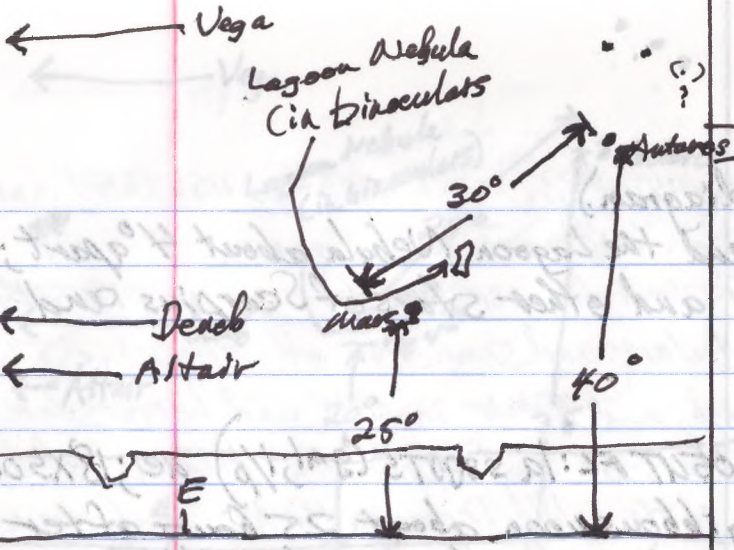 Vega
Lagoon Nebula
(in binoculars
(.)
?
Antares
30°
Mars
Deneb
Altair
40°
25°
E